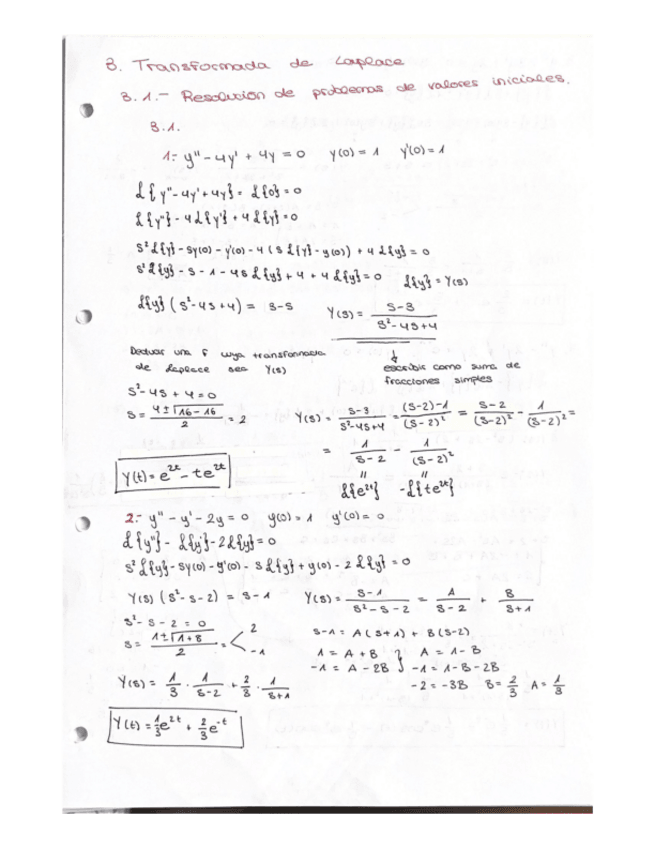 3. Transformada de Laplace
3.1.- Resolución de problemas de valores iniciales.
3.1.
1.- y'' - 4y' + 4y = 0 y(0) = 1 y'(0) = 1
ℒ{y'' - 4y' + 4y} = ℒ{0} = 0
ℒ{y''} - 4ℒ{y'} + 4ℒ{y} = 0
s²ℒ{y} - sy(0) - y'(0) - 4(sℒ{y} - y(0)) + 4ℒ{y} = 0
s²ℒ{y} - s - 1 - 4sℒ{y} + 4 + 4ℒ{y} = 0 ℒ{y} = Y(s)
ℒ{y}(s² - 4s + 4) = s - s Y(s) = (s-3)/(s²-4s+4)
Deducir una f cuya transformada
de Laplace sea Y(s)
escribir como suma de
fracciones simples
s² - 4s + 4 = 0
s = (4 ± √(16-16))/2 = 2
Y(s) = (s-3)/(s²-4s+4) = ((s-2)-1)/(s-2)² = (s-2)/(s-2)² - 1/(s-2)² =
= 1/(s-2) - 1/(s-2)²
ℒ{e^2t} -ℒ{te^2t}
Y(t) = e^2t - te^2t
2.- y'' - y' - 2y = 0 y(0) = 1 y'(0) = 0
ℒ{y''} - ℒ{y'} - 2ℒ{y} = 0
s²ℒ{y} - sy(0) - y'(0) - sℒ{y} + y(0) - 2ℒ{y} = 0
Y(s)(s² - s - 2) = s - 1 Y(s) = (s-1)/(s²-s-2) = A/(s-2) + B/(s+1)
s² - s - 2 = 0
s = (1 ± √(1+8))/2 = < 2
-1
s-1 = A(s+1) + B(s-2)
1 = A + B } A = 1 - B
-1 = A - 2B } -1 = 1 - B - 2B
-2 = -3B B = 2/3 A = 1/3
Y(s) = 1/3 · 1/(s-2) + 2/3 · 1/(s+1)
Y(t) = 1/3 e^2t + 2/3 e^-t